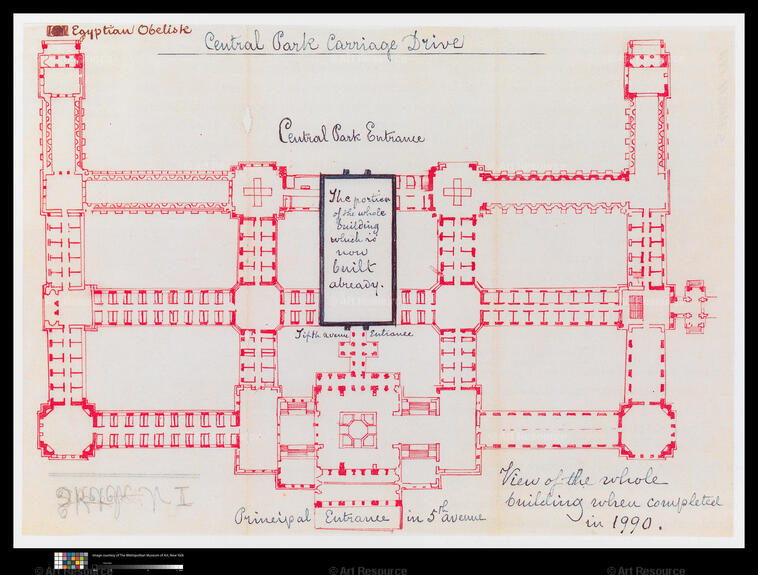 Egyptian Obelisk
Central Park Carriage Drive
Central Park Entrance
The portion
of the whole
building
which is
now
built
already.
Fifth avenue Entrance
View of the whole
building when completed
in 1990.
Principal Entrance in 5th avenue
Image courtesy of The Metropolitan Museum of Art, New York
© Art Resource
© Art Resource
© Art Resource